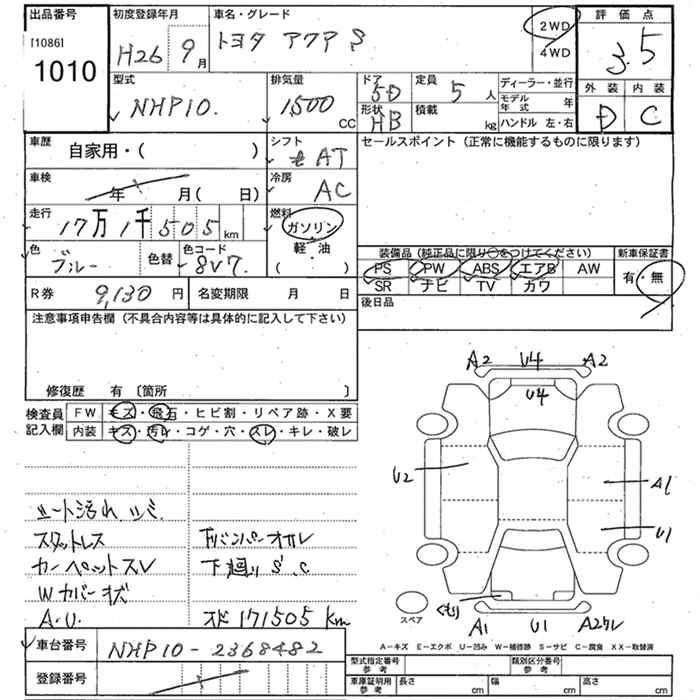 出品番号 初度登録年月 車名・グレード 評価点
[1086] 1010 H26 9月 トヨタ アクア S 2WD 4WD 3.5
外装 内装
D C
型式 排気量 ドア 5D 定員 5人 ディーラー・並行
NHP10. 1,500 CC 形状 HB 積載 kg モデル年式 年
ハンドル 左・右
車歴 シフト セールスポイント (正常に機能するものに限ります)
自家用・( ) AT
車検 冷房
年 月(日) AC
走行 燃料
17万1千505km ガソリン
軽・油
( )
色 ブルー 色替 色コード 8V7.
装備品 (純正品に限り○をつけてください) 新車保証書
PS PW ABS エアB AW 有・無
SR ナビ TV カワ
R券 9,130円 名変期限 月 日 後日品
注意事項申告欄 (不具合内容等は具体的に記入して下さい)
修復歴 有 〔箇所 〕
検査員 FW キズ・飛石・ヒビ割・リペア跡・X要
記入欄 内装 キズ・汚レ・コゲ・穴・スレ・キレ・破レ
A2 U4 A2
U4
U2 A1
U1
シート汚れ シミ
スタットレス Fバンパーオカレ
カーペットスレ 下廻り S.C
Wカバーキズ
A.U. スド 171505 km
スペア くもり A1 U1 A2
A-キズ E-エクボ U-凹み W-補修跡 S-サビ C-腐食 XX-取替済
車台番号 NHP10-2368482
登録番号
型式指定番号 参考 類別区分番号 参考
車庫証明用 参考 長さ cm 幅 cm 高さ cm